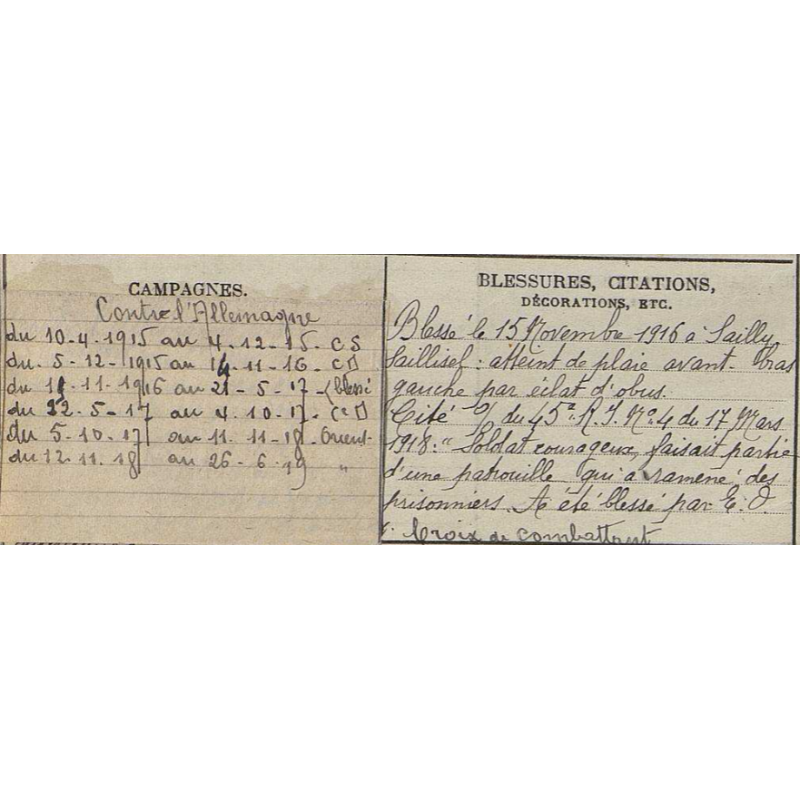 CAMPAGNES.
Contre l'Allemagne
du 10-4-1915 au 4-12-15- CS
du. 5-12-1915 au 14-11-16- CD
du 11-11-1916 au 21-5-17-(blessé
du 22-5-17 au 4.10.17. CD
du 5-10-17 au 11-11-18- Orient-
du 12.11.18 au 26-6.19 "
BLESSURES, CITATIONS,
DÉCORATIONS, ETC.
Blessé le 15 Novembre 1916 à Sailly
Saillisel: atteint de plaie avant-bras
gauche par éclat d'obus.
Cité O/ du 45e R.I. No 4 du 17 Mars
1918: "Soldat courageux, faisait partie
d'une patrouille qui a ramené des
prisonniers. A été blessé par E.O.
Croix de combattant